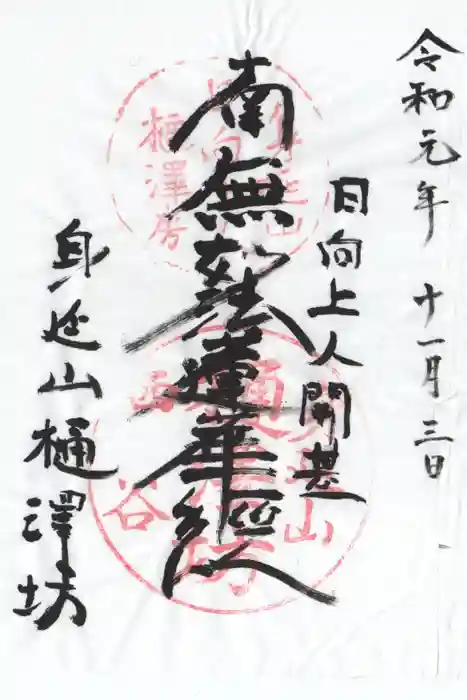 令和元年 十一月 三日
日向上人開基
南無妙法蓮華経
身延山樋澤坊
樋澤坊
西谷